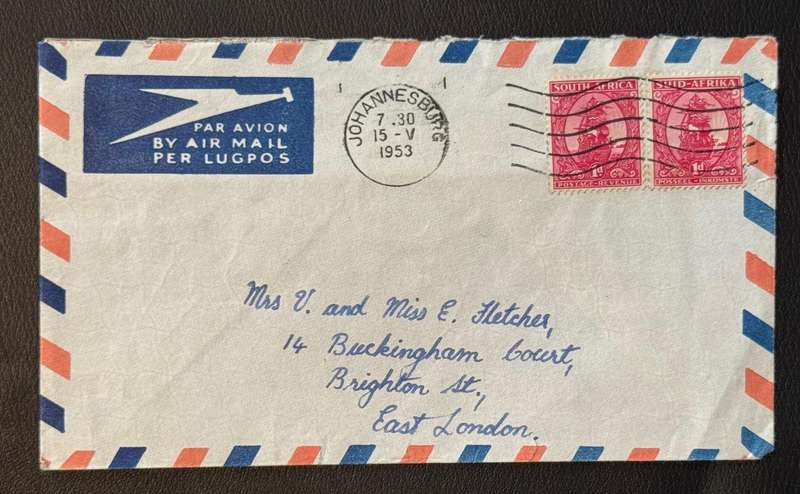 PAR AVION
BY AIR MAIL
PER LUGPOS
JOHANNESBURG
7.30
15-V
1953
SOUTH AFRICA
1d
POSTAGE-REVENUE
SUID-AFRIKA
1d
POSSEËL-INKOMSTE
Mrs V. and Miss E. Fletcher,
14 Buckingham Court,
Brighton St.,
East London.